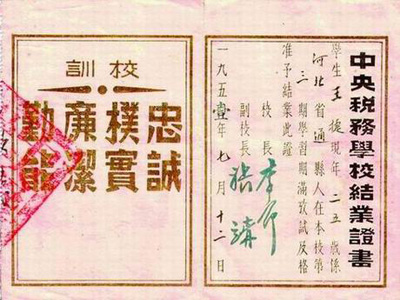 中央税務學校結業證書
學生王捷現年二五歲係
河北省通縣人在本校第
三期學習期滿攷試及格
准予結業此證
校長李
副校長張
一九五壹年七月十二
校訓
忠誠
樸實
廉潔
勤能